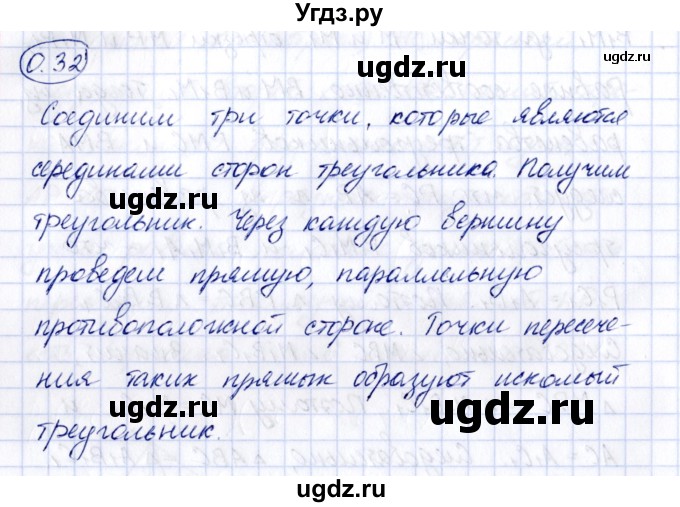 Угдз.ру
0.32
Соединим три точки, которые являются
серединами сторон треугольника. Получим
треугольник. Через каждую вершину
проведем прямую, параллельную
противоположной стороне. Точки пересече-
ния таких прямых образуют искомый
треугольник.
ugdz.ru
ugdz.ru
ugdz.ru
ugdz.ru
ugdz.ru
ugdz.ru
ugdz.ru
ugdz.ru